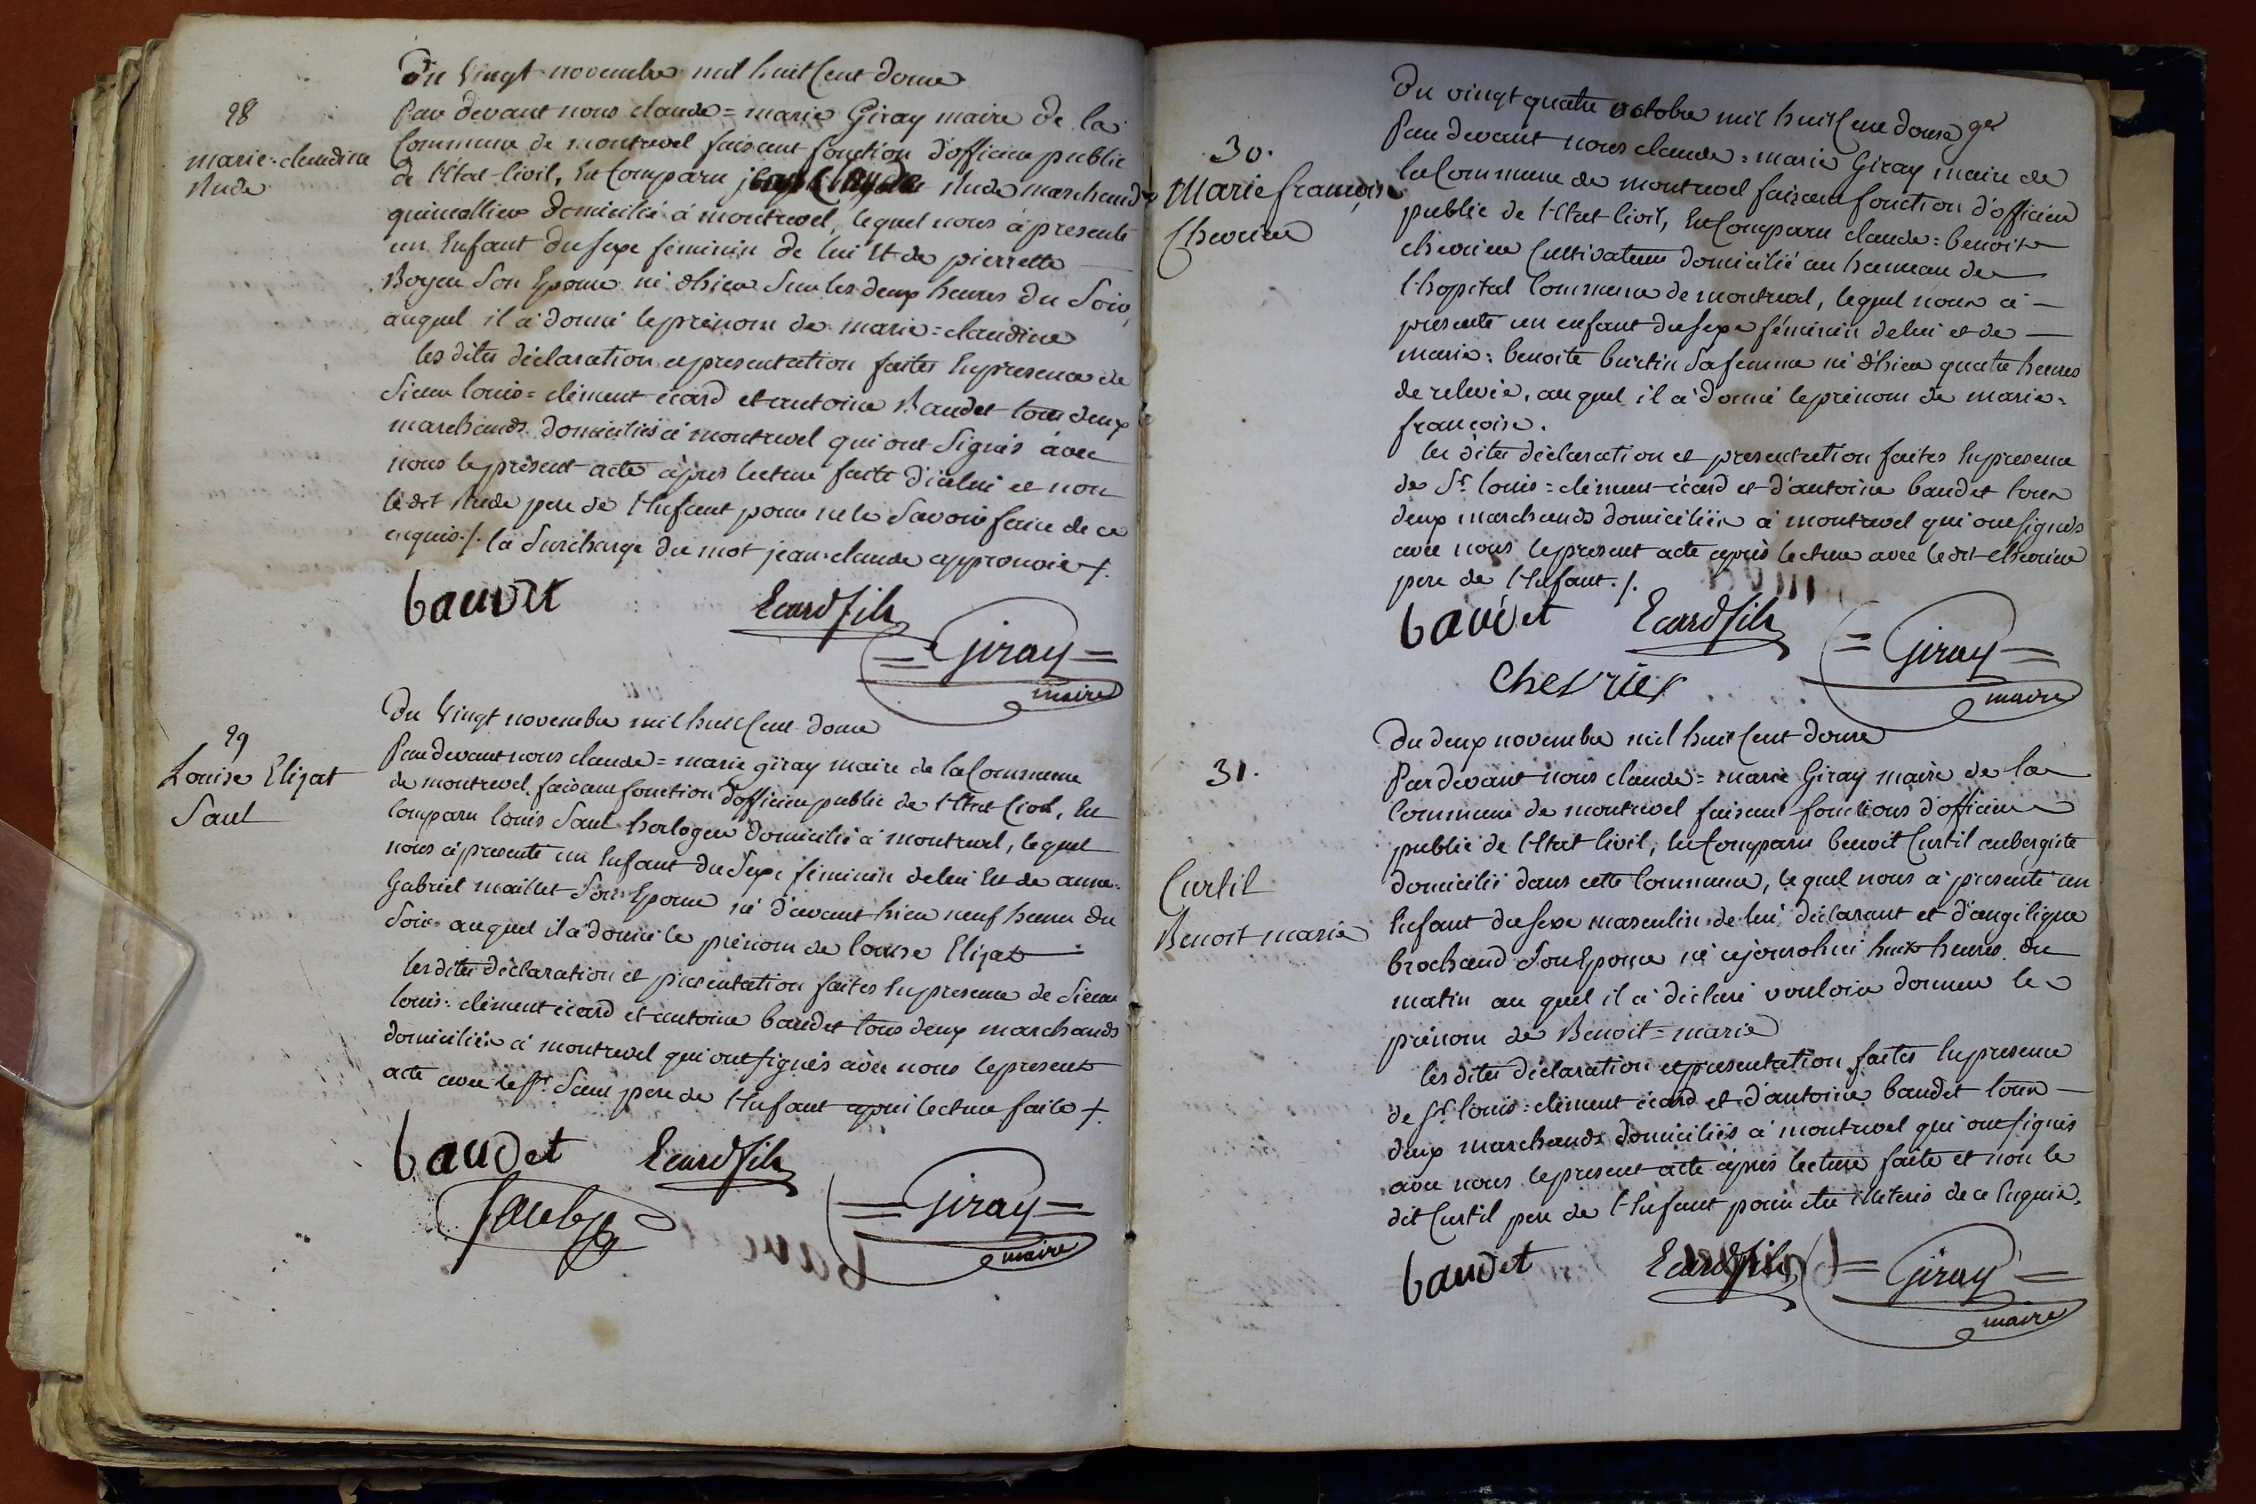 28
marie-claudine
Nude
Du vingt novembre mil huit Cent douze
Par devant nous claude=marie Giray maire de la
Commune de montrevel faisant fonction d'officier public
de l'Etat-Civil, Est Comparu jean Claude Nude marchand
quincallier domicilié à montrevel, lequel nous à presenté
un Enfant du sexe féminin de lui Et de pierrette
Royer Son Epouse né d'hier Sur les deux heures du Soir,
auquel il à donné le prénom de marie=claudine
les dites déclaration et presentation faites En presence de
Sieur louis=clément écard et antoine Baudet tous deux
marchands domiciliés à montrevel qui ont Signés avec
nous le présent acte après lecture faite d'icelui et non
le dit Nude pere de l'Enfant pour ne le Savoir faire de ce
enquis ./. la Surcharge du mot jean-claude approuvée ./.
baudet Ecard fils
=Giray=
maire
29
Louise Elizat
Saul
Du vingt novembre mil huit Cent douze
Par devant nous claude=marie giray maire de la Commune
de montrevel faisant fonction d'officier public de l'Etat Civil, Est
Comparu louis Saul horloger domicilié à montrevel, lequel
nous à presenté un Enfant du Sexe féminin de lui Et de anne-
Gabriel maillet Son Epouse né d'avant hier neuf heures du
Soir auquel il a donné le prénom de louise Elizat
les dites déclaration et presentation faites En presence de Sieur
louis-clément écard et antoine baudet tous deux marchands
domiciliés à montrevel qui ont signés avec nous le present
acte avec le sr Saul pere de l'Enfant apres lecture faite ./.
baudet Ecard fils
=Giray=
maire
30.
Marie françoise
Chevrier
Du vingt quatre octobre mil huit Cent douze
Par devant nous claude=marie Giray maire de
la Commune de montrevel faisant fonction d'officier
public de l'Etat-Civil, Est Comparu claude=benoit
chevrier Cultivateur domicilié au hameau de
l'hopital Commune de montrevel, lequel nous à
presenté un enfant du sexe féminin de lui et de
marie=benoite burtin Sa femme né d'hier quatre heures
de relevée, auquel il à donné le prénom de marie=
françoise.
les dites déclaration et presentation faites En presence
de Sr. louis=clément écard et d'antoine baudet tous
deux marchands domiciliés à montrevel qui ont signés
avec nous le present acte après lecture avec le dit chevrier
pere de l'Enfant ./.
baudet Ecard fils
=Giray=
maire
chevrier
31.
Curtil
Benoit marie
Du deux novembre mil huit Cent douze
Par devant nous claude=marie Giray maire de la
Commune de montrevel faisant fonctions d'officier
public de l'Etat Civil, Est Comparu benoit Curtil aubergiste
domicilié dans cette Commune, lequel nous à presenté un
Enfant du sexe masculin de lui déclarant et d'angeligue
brochand Son Epouse né cejourdhui huit heures du
matin au quel il à déclaré vouloir donner le
prénom de Benoit=marie
les dites déclaration et presentation faites En presence
de Sr. louis=clément écard et d'antoine baudet tous
deux marchands domiciliés à montrevel qui ont signés
avec nous le present acte après lecture faite et non le
dit Curtil pere de l'Enfant pour etre illeteris de ce Enquis.
baudet Ecard fils
=Giray=
maire